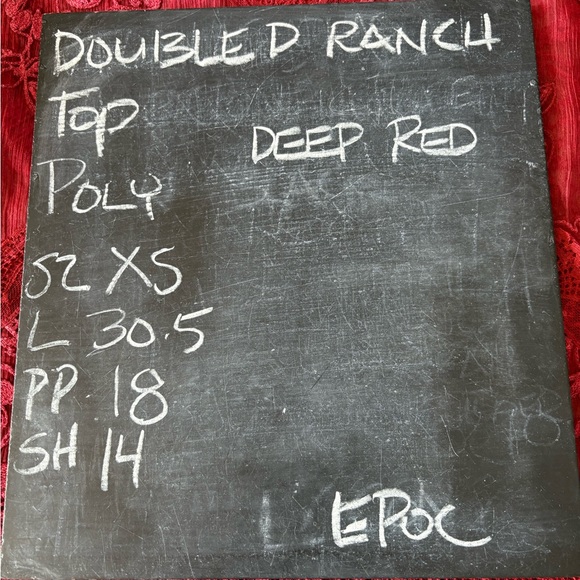 DOUBLE D RANCH
TOP
DEEP RED
POLY
SZ XS
L 30.5
PP 18
SH 14
EPOC